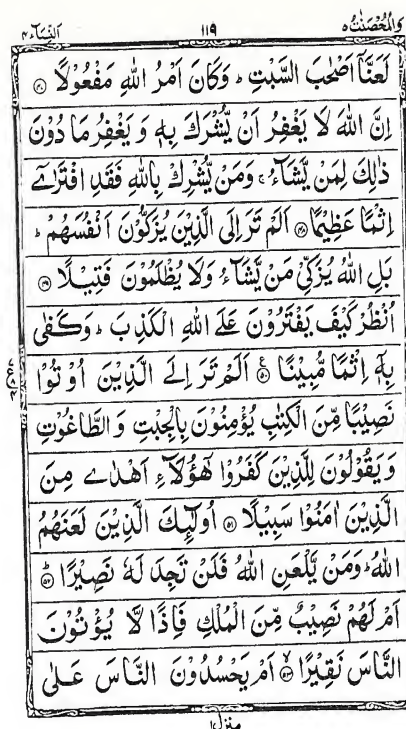 والمحصنت ٥ ١١٩ النسآء ٤
لَعَنَّآ اَصْحٰبَ السَّبْتِ ؕ وَكَانَ اَمْرُ اللّٰهِ مَفْعُوْلًا ﴿۴۷﴾
اِنَّ اللّٰهَ لَا يَغْفِرُ اَنْ يُّشْرَكَ بِهٖ وَيَغْفِرُ مَا دُوْنَ
ذٰلِكَ لِمَنْ يَّشَآءُ ۚ وَمَنْ يُّشْرِكْ بِاللّٰهِ فَقَدِ افْتَرٰٓے
اِثْمًا عَظِيْمًا ﴿۴۸﴾ اَلَمْ تَرَ اِلَى الَّذِيْنَ يُزَكُّوْنَ اَنْفُسَهُمْ ؕ
بَلِ اللّٰهُ يُزَكِّىْ مَنْ يَّشَآءُ وَلَا يُظْلَمُوْنَ فَتِيْلًا ﴿۴۹﴾
اُنْظُرْ كَيْفَ يَفْتَرُوْنَ عَلَے اللّٰهِ الْكَذِبَ ؕ وَكَفٰى
بِهٖٓ اِثْمًا مُّبِيْنًا ﴿۵۰﴾ اَلَمْ تَرَ اِلَے الَّذِيْنَ اُوْتُوْا
نَصِيْبًا مِّنَ الْكِتٰبِ يُؤْمِنُوْنَ بِالْجِبْتِ وَالطَّاغُوْتِ
وَيَقُوْلُوْنَ لِلَّذِيْنَ كَفَرُوْا هٰٓؤُلَآءِ اَهْدٰے مِنَ
الَّذِيْنَ اٰمَنُوْا سَبِيْلًا ﴿۵۱﴾ اُولٰٓئِكَ الَّذِيْنَ لَعَنَهُمُ
اللّٰهُ ؕ وَمَنْ يَّلْعَنِ اللّٰهُ فَلَنْ تَجِدَ لَهٗ نَصِيْرًا ﴿۵۲﴾
اَمْ لَهُمْ نَصِيْبٌ مِّنَ الْمُلْكِ فَاِذًا لَّا يُؤْتُوْنَ
النَّاسَ نَقِيْرًا ﴿۵۳﴾ اَمْ يَحْسُدُوْنَ النَّاسَ عَلٰى
منزل ١